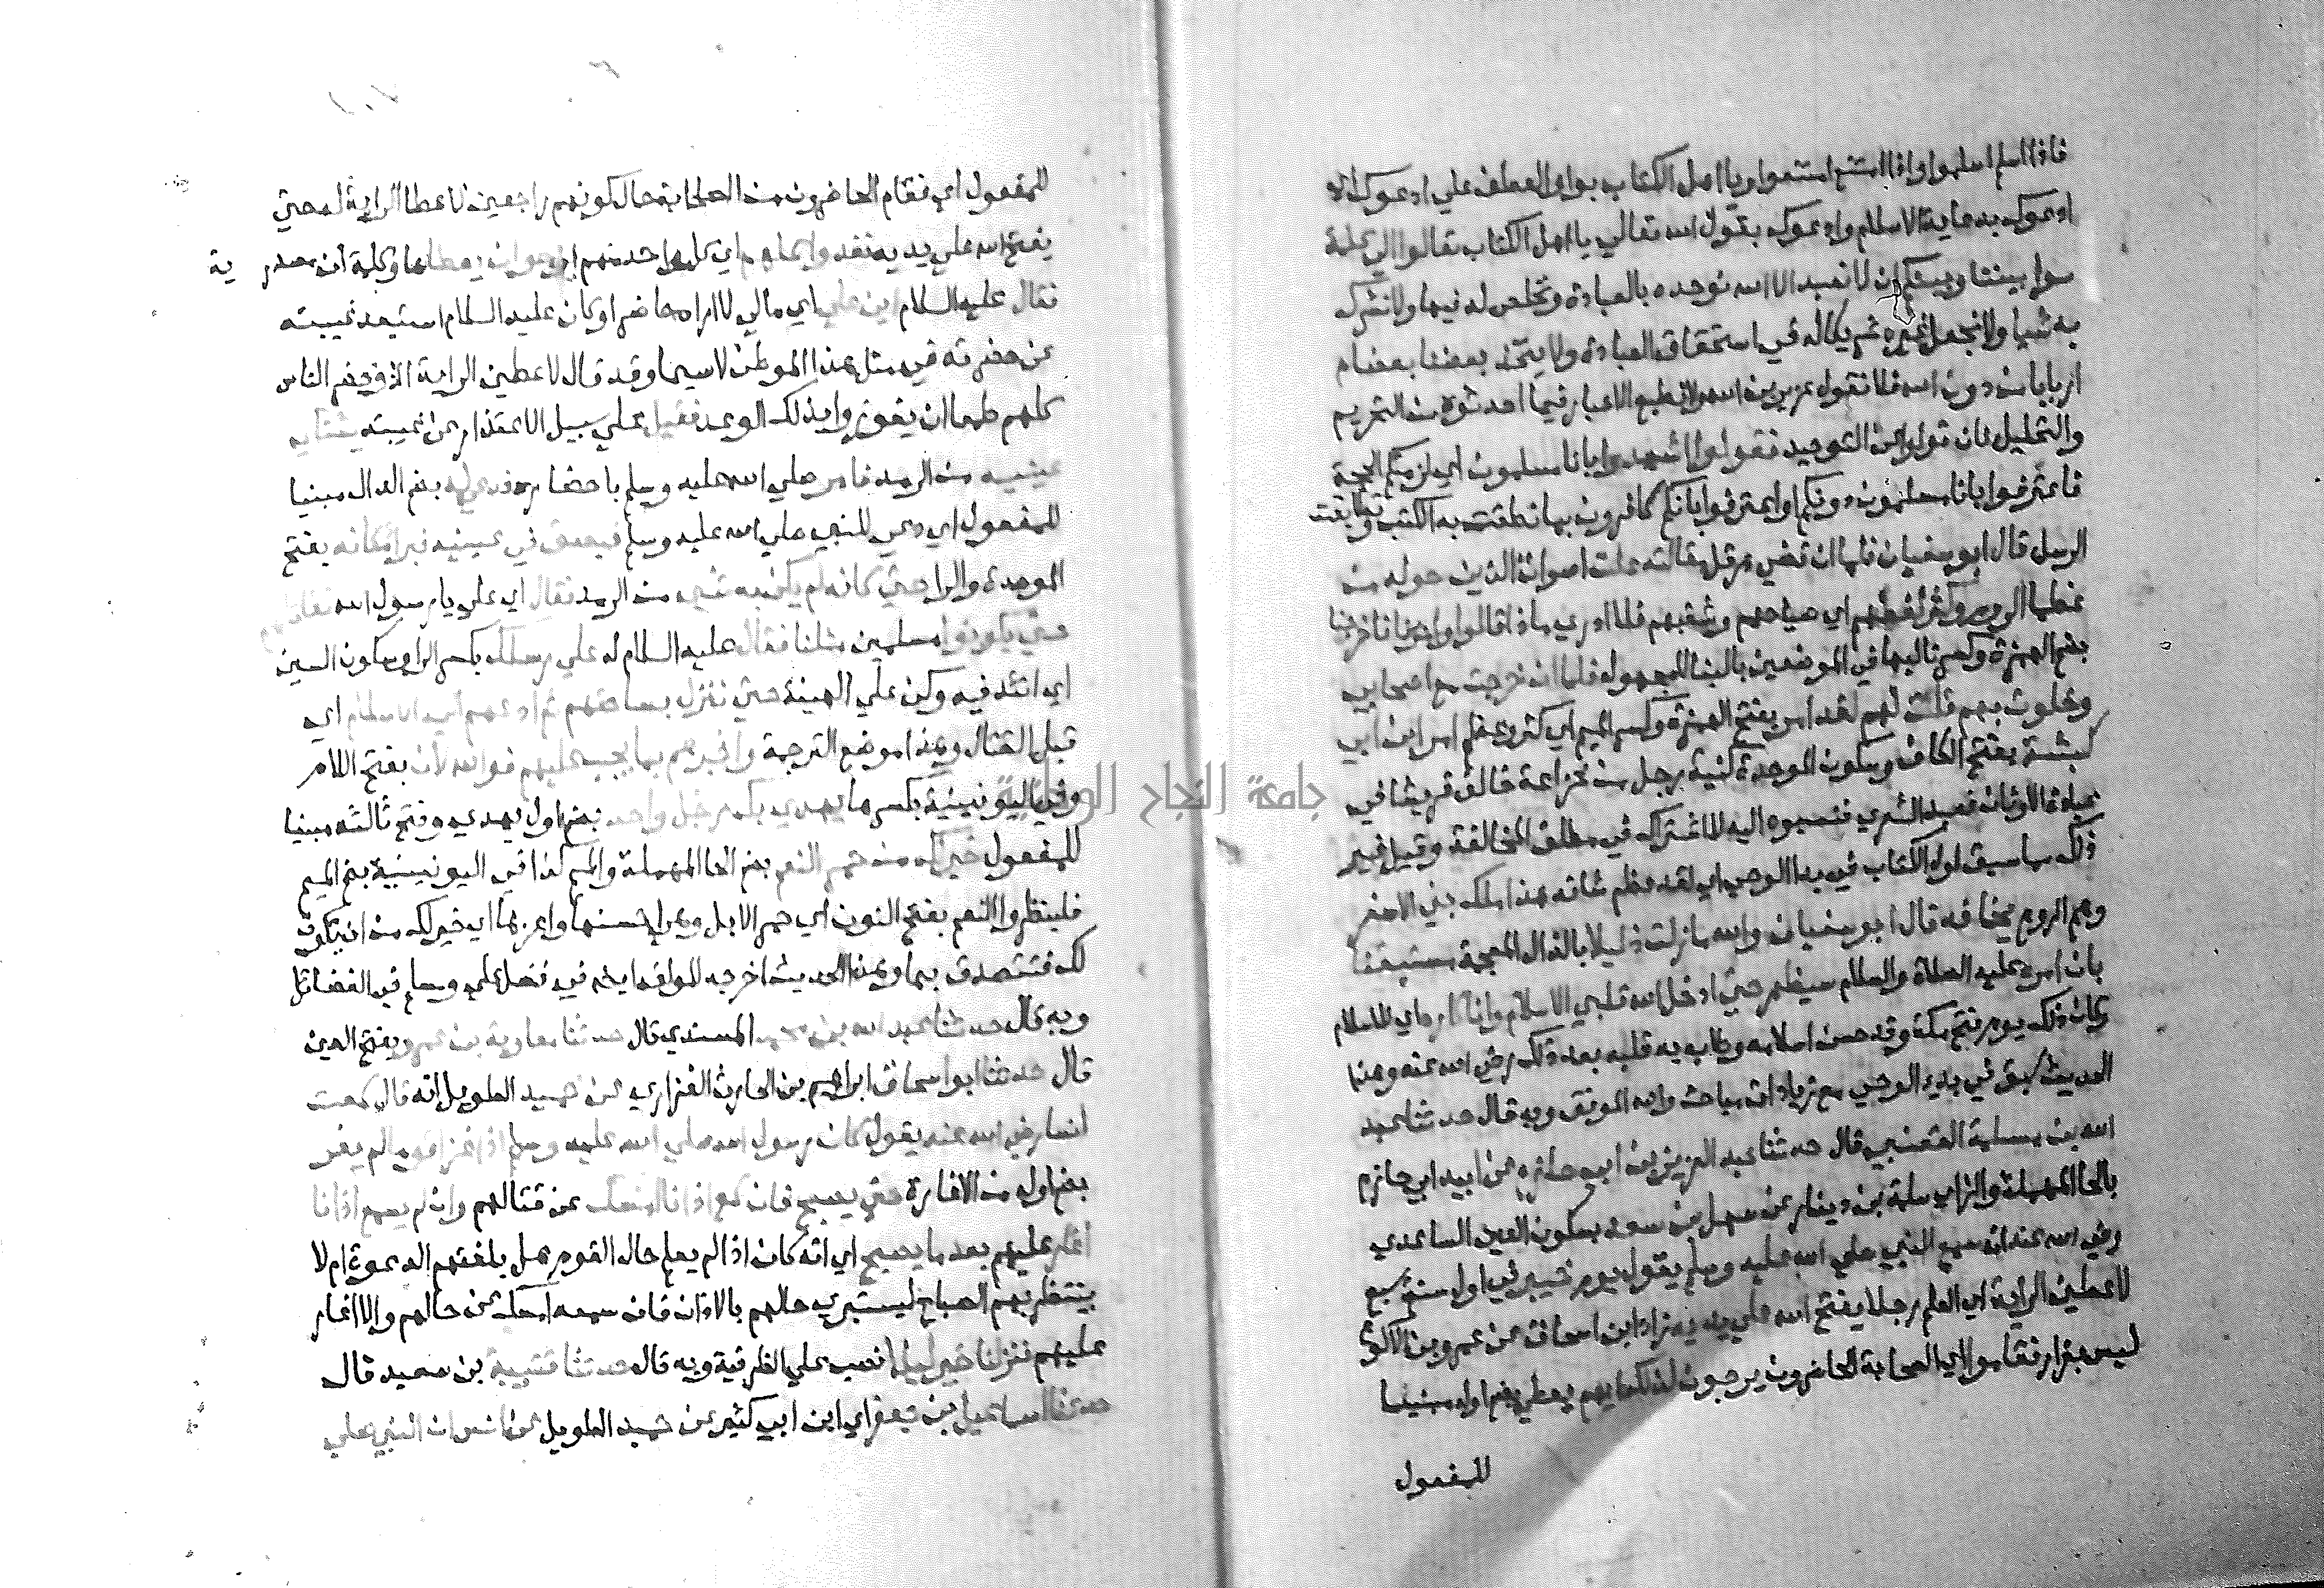 فاذا اسلم اسلموا واذا امتنع امتنعوا ويا اهل الكتاب بواو العطف علي ادعوك اي
ادعوك بدعاية الاسلام وادعوك بقول الله تعالي يا اهل الكتاب تعالوا الي كلمة
سوا بيننا وبينكم ان لا نعبد الا الله نوحده بالعبادة ونخلص له فيها ولا نشرك
به شيا ولا نجعل غيره شريكا له في استحقاق العبادة ولا يتخذ بعضنا بعضا
اربابا من دون الله فلا نقول عزير بن الله ولا نطيع الاحبار فيما احدثوه من التحريم
والتحليل فان تولوا عن التوحيد فقولوا اشهدوا بانا مسلمون اي لزمتكم الحجة
فاعترفوا بانا مسلمون دونكم او اعترفوا بانكم كافرون بما نطقت به الكتب وتطابقت
الرسل قال ابو سفيان فلما ان قضي هرقل مقالته علت اصوات الذين حوله من
عظما الروم وكثر لغطهم اي صياحهم وشغبهم فلا ادري ماذا قالوا وامر بنا فاخرجنا
بضم الهمزة وكسر ثاليها في الموضعين بالبنا للمجهول فلما ان خرجت مع اصحابي
وخلوت بهم قلت لهم لقد امر بفتح الهمزة وكسر الميم اي كثر وعظم امر ابن ابي
كبشة بفتح الكاف وسكون الموحدة كنية رجل من خزاعة خالف قريشا في
عبادة الاوثان فعبد الشعري فنسبوه اليه للاشتراك في مطلق المخالفة وقيل غير
ذلك مما سبق اول الكتاب في بدا الوحي اي لقد عظم شانه هذا ملك بني الاصفر
وهم الروم يخافه قال ابو سفيان والله ما زلت ذليلا بالذال المعجمة مستيقنا
بان امره عليه الصلاة والسلام سيظهر حتي ادخل الله قلبي الاسلام وانا كاره اي للاسلام
وكان ذلك يوم فتح مكة وقد حسن اسلامه وطاب به قلبه بعد ذلك رضي الله عنه وهذا
الحديث سبق في بدء الوحي مع زيادات مباحث والله الموفق وبه قال حدثنا عبد
الله بن مسلمة القعنبي قال حدثنا عبد العزيز بن ابي حازم عن ابيه ابي حازم
بالحا المهملة والزاي سلمة بن دينار عن سهل بن سعد بسكون العين الساعدي
رضي الله عنه انه سمع النبي صلي الله عليه وسلم يقول يوم خيبر في اول سنة سبع
لاعطين الراية اي العلم رجلا يفتح الله علي يديه زاد ابن اسحاق عن عمرو بن الاكوع
ليس بفرار فقاموا اي الصحابة الحاضرون يرجون لذلك ايهم يعطي بضم اوله مبنيا
للمفعول
للمفعول اي فقام الحاضرون من الصحابة حال كونهم راجعين لاعطا الراية له حتي
يفتح الله علي يديه فغدوا وكلهم اي كل واحد منهم يرجو ان يعطاها وكلمة ان مصدرية
فقال عليه السلام اين علي اي مالي لا اراه حاضرا وكان عليه السلام استبعد غيبته
عن حضرته في مثل هذا الموطن لا سيما وقد قال لاعطين الراية الخ وحضر الناس
كلهم طمعا ان يفوزوا بذلك الوعد فقيل علي سبيل الاعتذار عن غيبته يشتكي
عينيه من الرمد فامر صلي الله عليه وسلم باحضاره فدعي له بضم الدال مبنيا
للمفعول اي دعي للنبي صلي الله عليه وسلم فبصق في عينيه فبرا مكانه بفتح
الموحدة والرا حتي كانه لم يكن به شي من الرمد فقال اي علي يا رسول الله نقاتلهم
حتي يكونوا مسلمين مثلنا فقال عليه السلام له علي رسلك بكسر الرا وسكون السين
اي اتئد فيه وكن علي الهينة حتي تنزل بساحتهم ثم ادعهم الي الاسلام اي
قبل القتال وهذا موضع الترجمة واخبرهم بما يجب عليهم فوالله لان بفتح اللام
وفي اليونينية بكسرها يهدي بك رجل واحد بضم اول يهدي وفتح ثالثه مبنيا
للمفعول خير لك من حمر النعم بضم الحا المهملة والميم كذا في اليونينية بضم الميم
فلينظر والنعم بفتح النون اي حمر الابل وهي احسنها واعزها اي خير لك من ان تكون
لك فتتصدق بها وهذا الحديث اخرجه المولف ايضا في فضل علي ومسلم في الفضائل
وبه قال حدثنا عبد الله بن محمد المسندي قال حدثنا معاوية بن عمرو بفتح العين
قال حدثنا ابو اسحاق ابراهيم بن الحارث الفزاري عن حميد الطويل انه قال سمعت
انسا رضي الله عنه يقول كان رسول الله صلي الله عليه وسلم اذا غزا قوما لم يغر
بضم اوله من الاغارة حتي يصبح فان سمع اذانا امسك عن قتالهم وان لم يسمع اذانا
اغار عليهم بعد ما يصبح اي انه كان اذا لم يعلم حال القوم هل بلغتهم الدعوة ام لا
ينتظر بهم الصباح ليستبري حالهم بالاذان فان سمعه امسك عن حالهم والا اغار
عليهم فنزلنا خيبر ليلا نصب علي الظرفية وبه قال حدثنا قتيبة بن سعيد قال
حدثنا اسماعيل بن جعفر اي ابن ابي كثير عن حميد الطويل عن انس ان النبي صلي
جامعة النجاح الوطنية